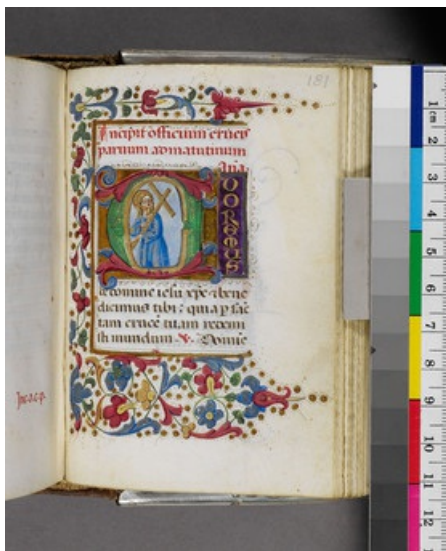 181
Incipit officium crucis
paruum ad matutinum
Ana
DOREMUS
te domine iesu xpe & bene
dicimus tibi: quia p sāc
tam crucē tuam redemi
sti mundum. V. Domīe
1 cm 2 3 4 5 6 7 8 9 10 11 12